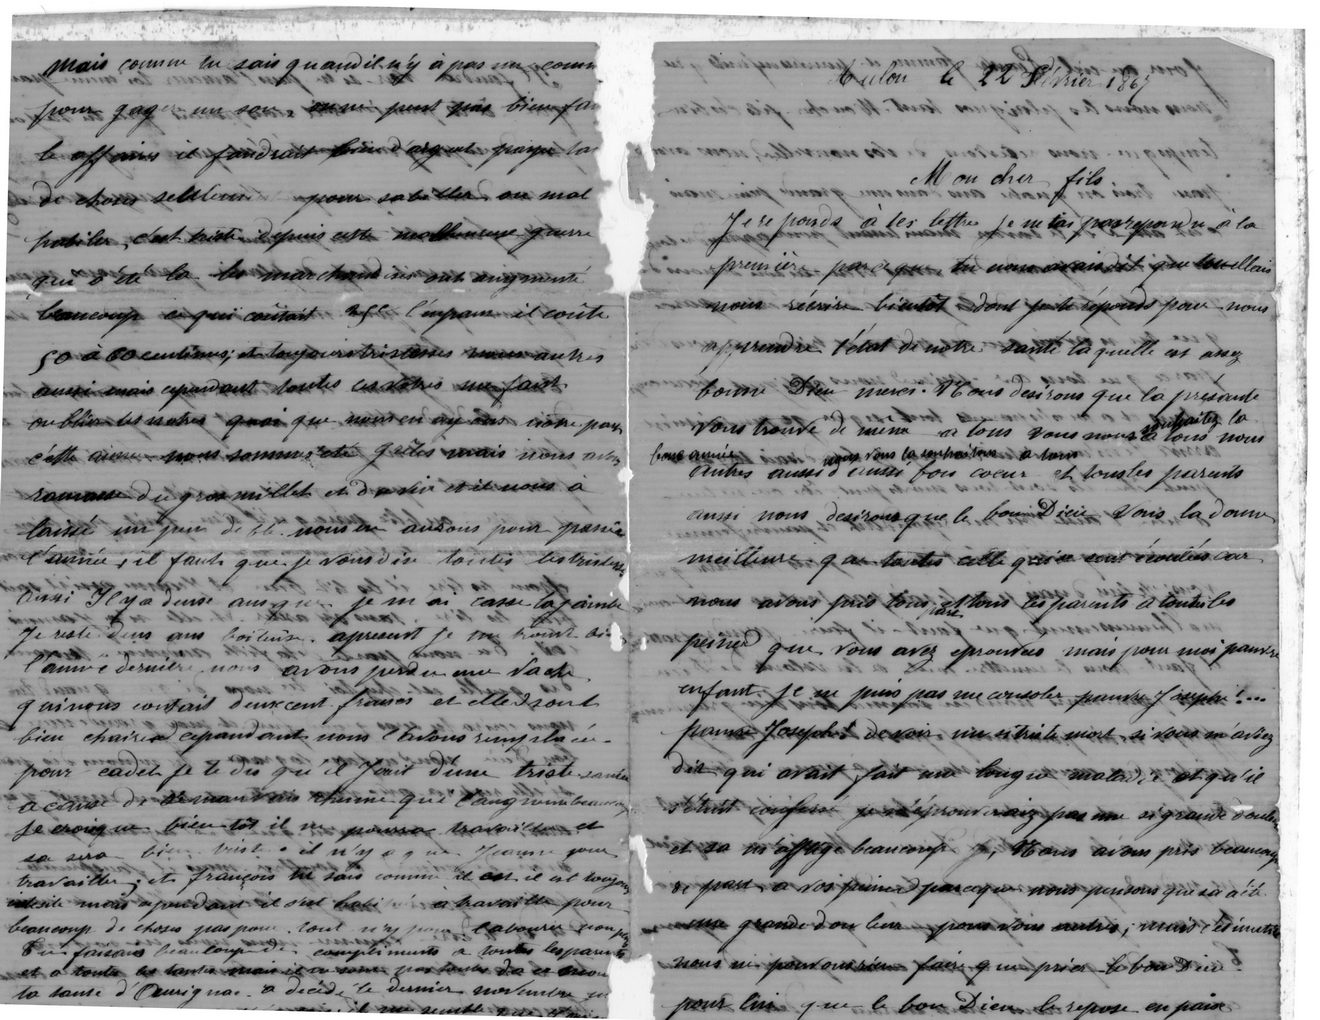 le 22 Février 186
Mon cher fils
Je reponds à tes lettre je ne tai pas repondu à la
première parceque tu nous avais dit que tu allais
nous recrire bientôt dont je te réponds pour nous
apprendre l'état de notre santé laquelle est assez
bonne Dieu merci. Nous desirons que la présente
vous trouve de même a tous vous nous souhaitez la
bonne année à tous nous
autres aussi nous vous la souhaitons a tous
d'aussi bon coeur et tous les parents
aussi nous desirons que le bon Dieu vous la donne
meilleure que toutes celle qui se sont écoulés car
nous avons pris tous part et tous les parents a toutes les
peines que vous avez eprouvées mais pour moi pauvre
enfant je ne puis pas me consoler pauvre Joseph !...
pauvre Joseph ! de voir une si triste mort, si vous m'aviez
dit qui avait fait une longue maladie et qu'il
s'était confessé je n'éprouverais pas une si grande douleur
et sa m'afflige beaucoup Nous avons pris beaucoup
de part a vos peines parceque nous pensons que sa a été
une grande douleur pour vous autres, mais
nous ne pouvons rien faire que prier le bon Dieu
pour lui que le bon Dieu le repose en paix
mais comme tu sais quand il n'y à pas un
pour gagner un sou, on ne peut pas bien
le affaires il faudrait bien d'argent
de choses pour sabiller ou mal
sabiler, c'est triste depuis cette malheureuse guerre
qui a été la les marchandises ont augmenté
beaucoup ce qui coûtait il coûte
50 à 60 centimes; et toujours tristesses nous autres
aussi mais cependant toutes ces votres me font
oublier les notres quoi que nous en ayons notre part
cette année nous sommes été mais nous avons
ramassé du gros millet et et il nous à
laissé un peu de blé nous en aurons pour passer
l'année, il faut que je vous dise toutes les tristesses
aussi Il y a deux ans que je m ai cassé la jambe
Je reste deux ans boiteuse. apresent je me trouve
l'année dernière nous avons perdu une vache
qui nous coutait deux cent francs et elles sont
bien chaires cependant nous l'avons remplacée
pour cadet je te dis qu'il jouit d'une triste santé
a cause de
je crois que bientôt il ne pourra travailler et
sa sera bien triste il n'y a que Jeanne pour
travailler, et françois tu sais comme il est, il est toujours
mais cependant il a travaillé pour
beaucoup de choses pas pour tout n'y pour labourer
Tu faisais beaucoup de compliments a toutes les parents
et a toute les tantes mais
la tante d'Aurignac a décédé le dernier novembre
il me semble